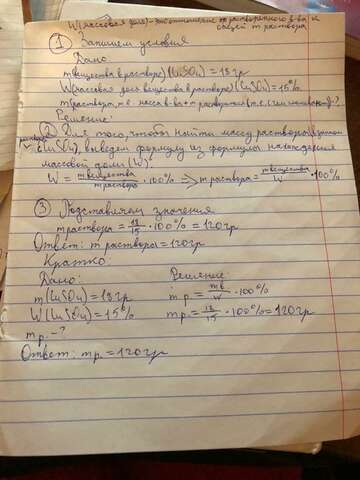 W(массовая доля) - это отношение растворенного в-ва к
общей m раствора
① Запишем условия
Дано
m(вещества в растворе)(CuSO4) = 18гр
W(массовая доля вещества в растворе)(CuSO4) = 15%
m(раствора, т.е. масса в-ва + m растворителя (т.е. ) - ?
Решение:
② Для того, чтобы найти массу раствора
CuSO4), выведем формулу из формулы нахождения
массовой доли (W):
W = m вещества / m раствора · 100% => m раствора = m вещества / W · 100%
③ Подставляем значения
m раствора = 18/15 · 100% = 120гр
Ответ: m раствора = 120гр
Кратко:
Дано: Решение:
m(CuSO4) = 18гр m р. = mв / W · 100%
W(CuSO4) = 15% m р. = 18/15 · 100% = 120гр
m р. - ?
Ответ: m р. = 120гр